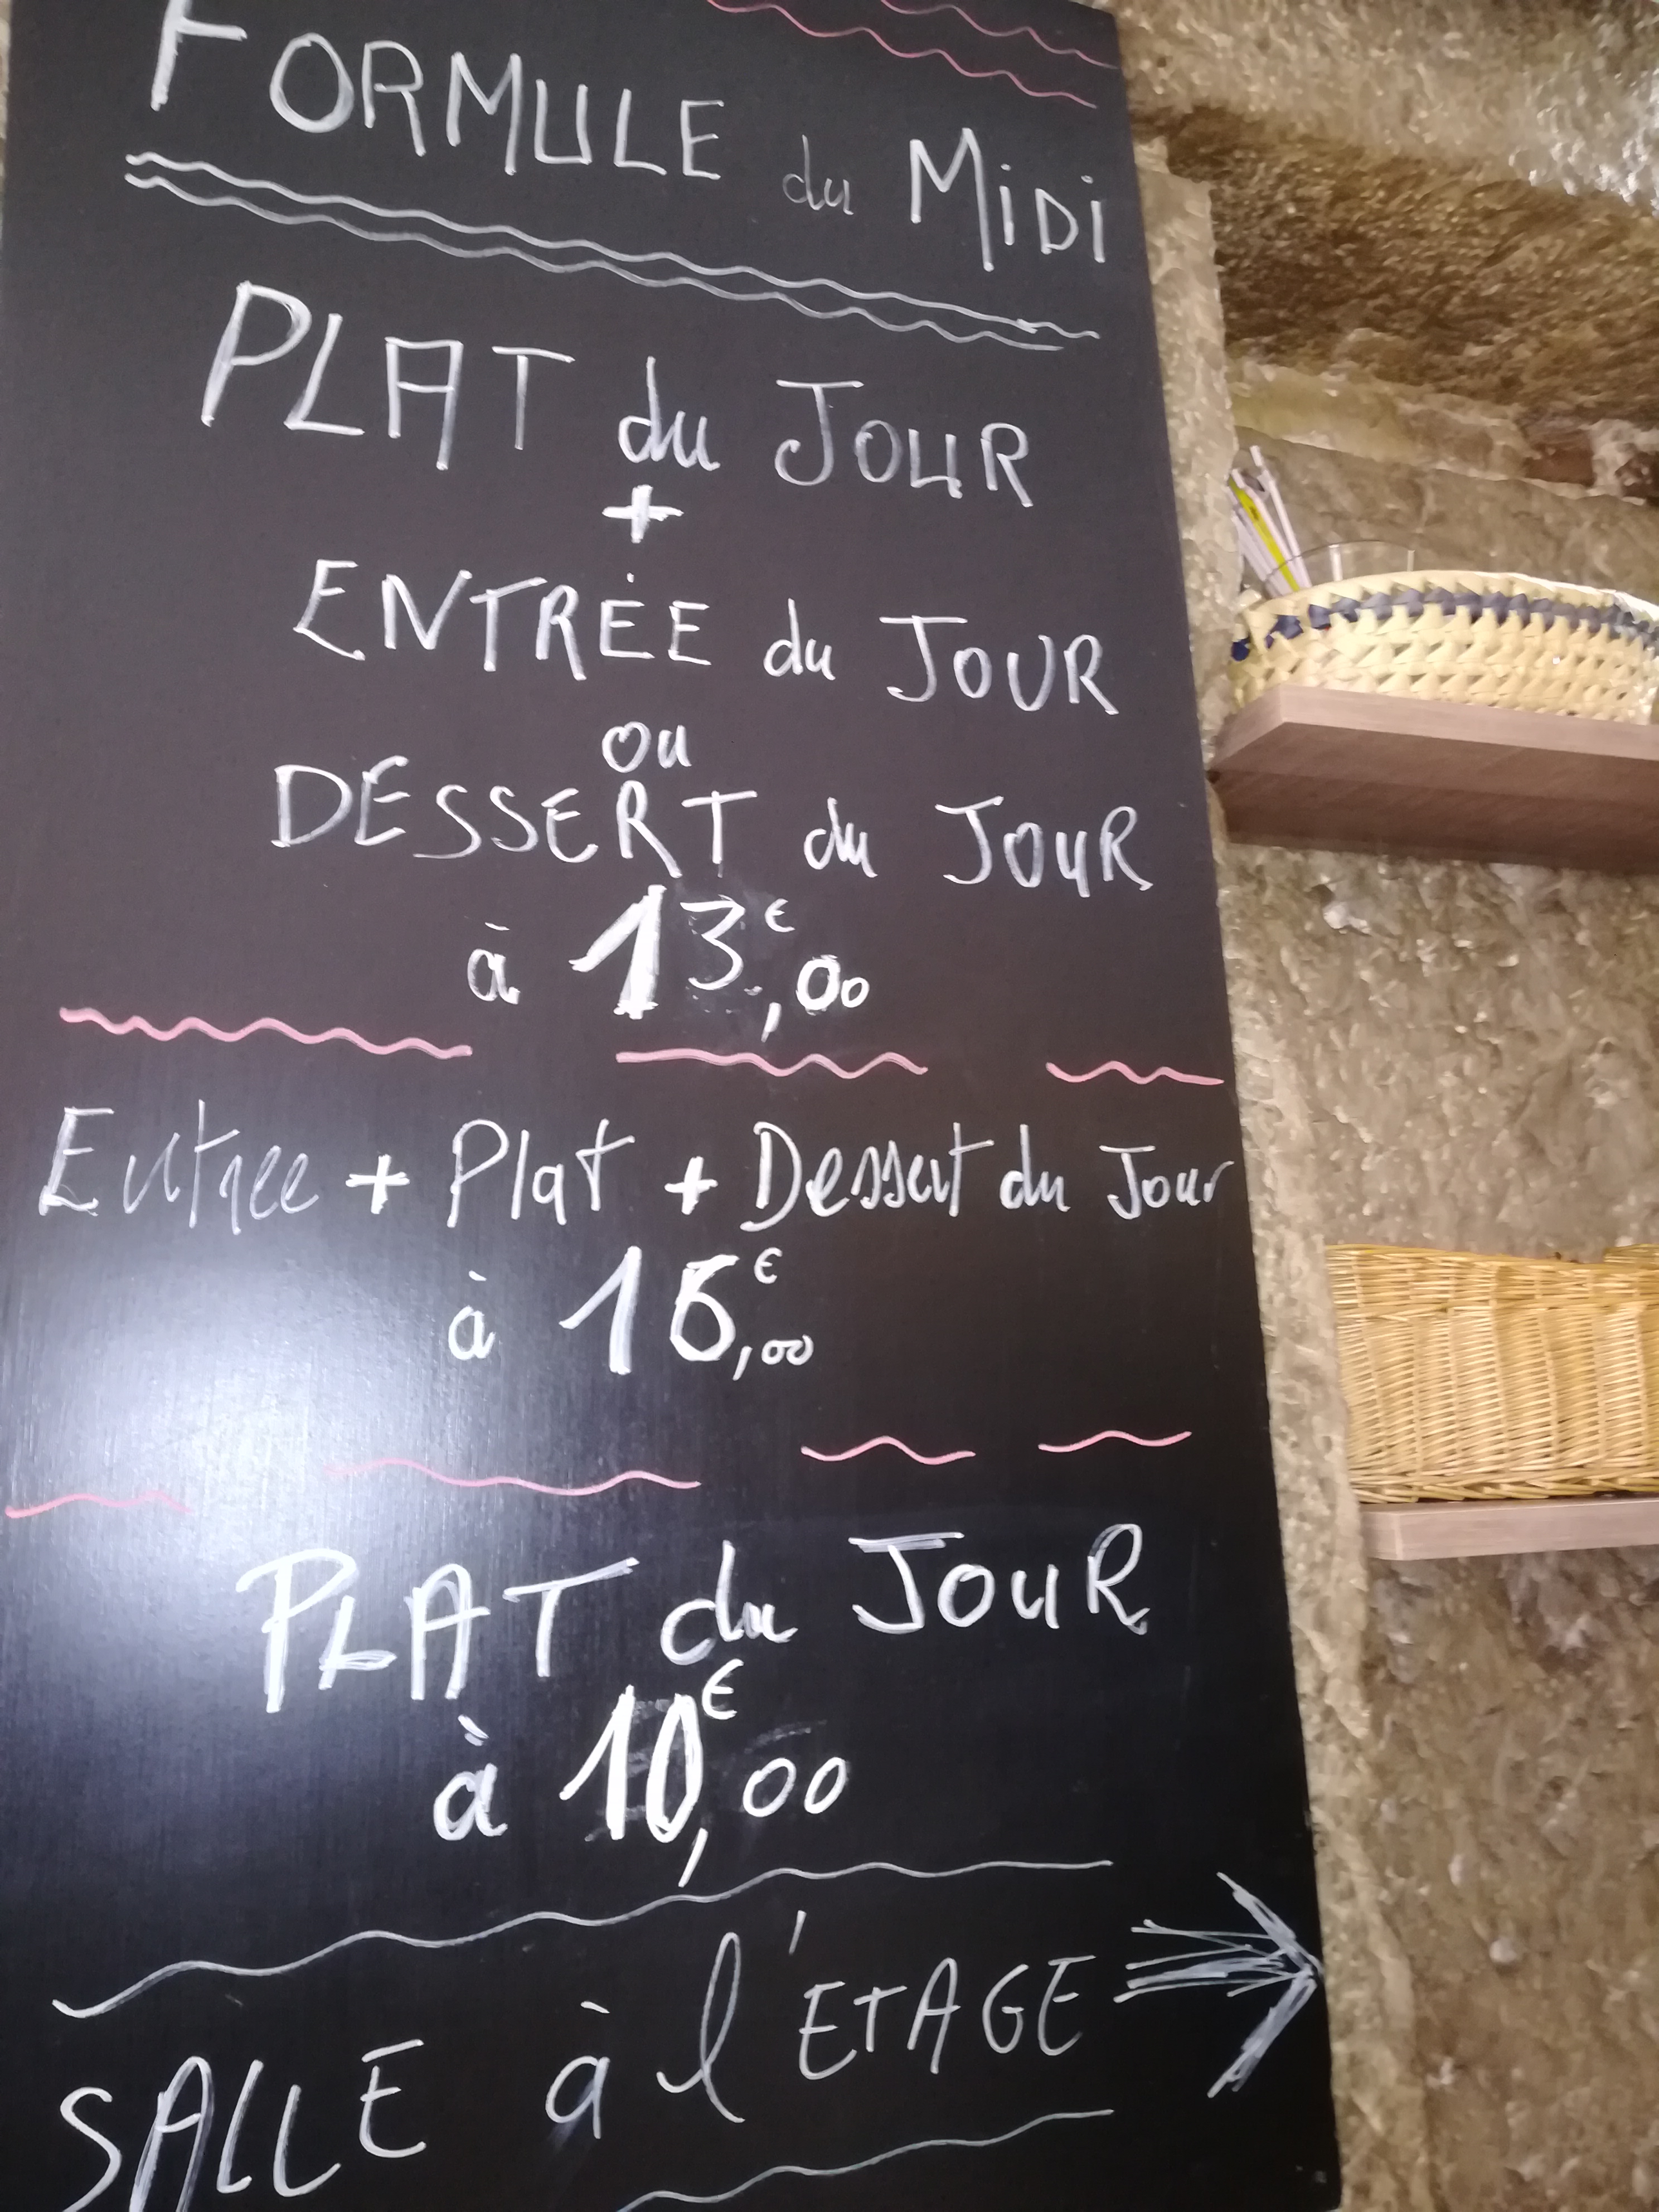 FORMULE du MiDi
PLAT du JOUR
+
ENTRÉE du JOUR
ou
DESSERT du JOUR
à 13€,00
Entree + Plat + Dessert du Jour
à 16€,00
PLAT du JOUR
à 10€,00
SALLE à l'ETAGE